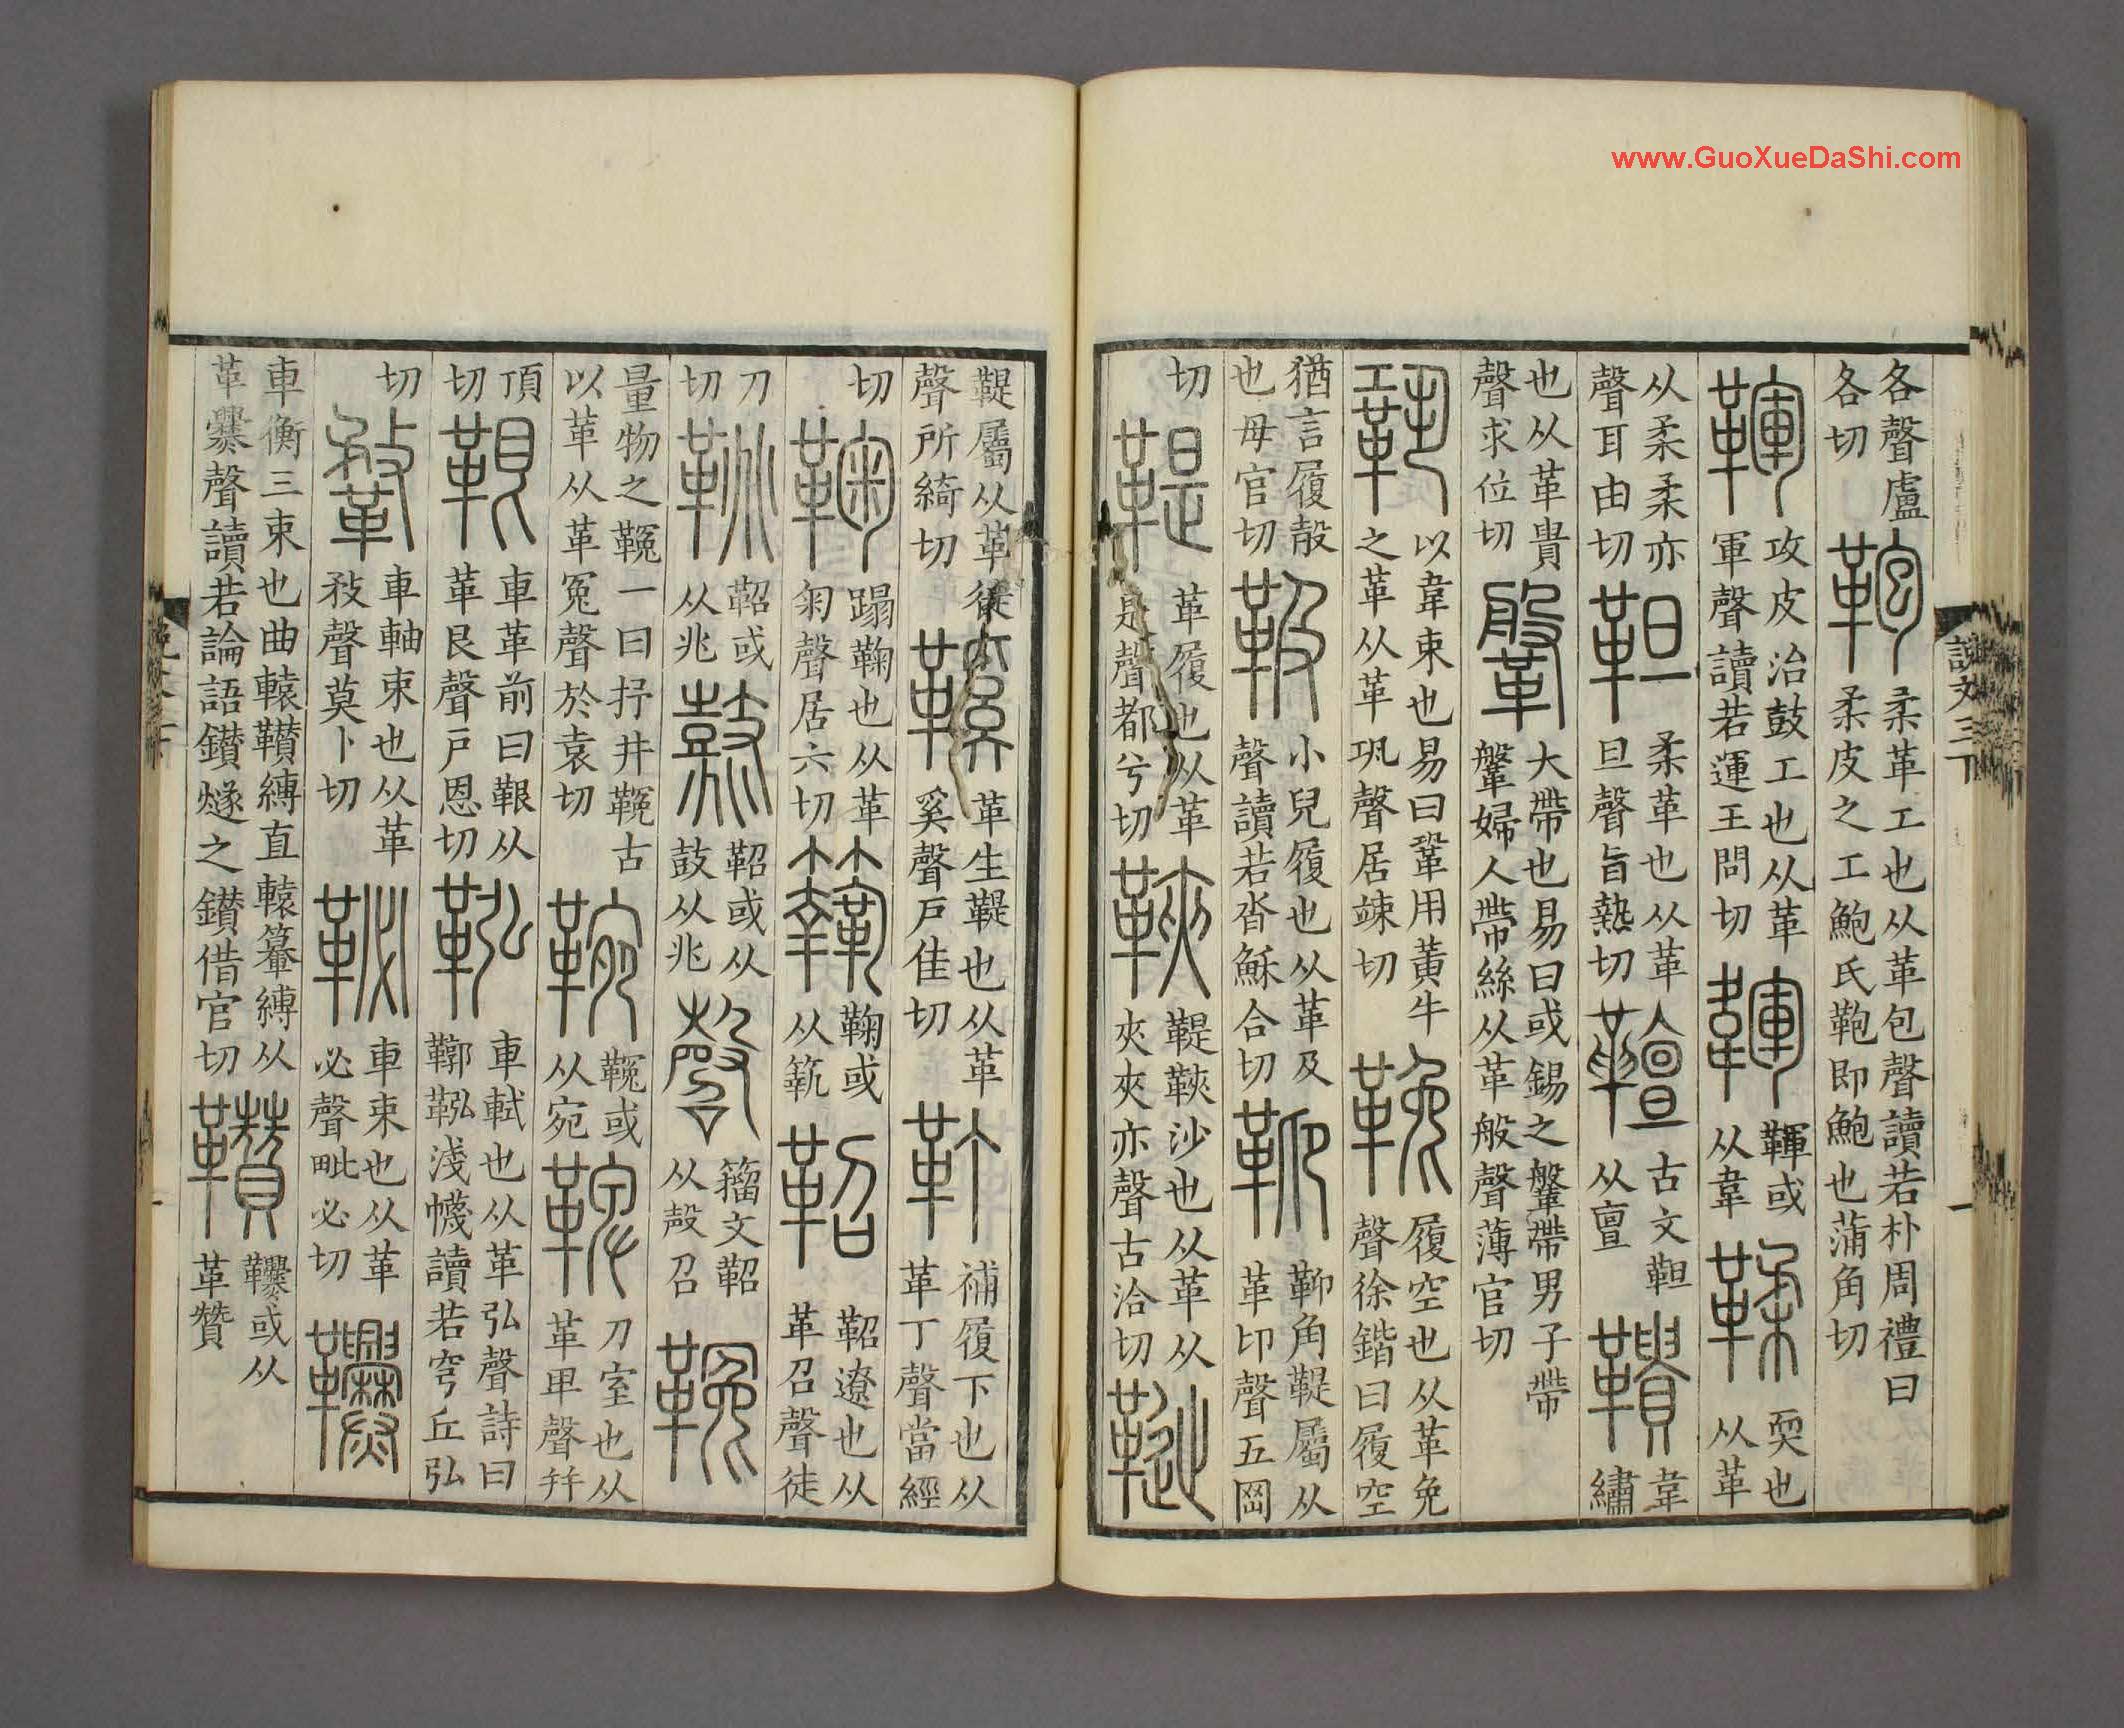 www.GuoXueDaShi.com
說文三下
各聲盧各切鞄柔革工也从革包聲讀若朴周禮曰柔皮之工鮑氏鞄即鮑也蒲角切
韗攻皮治鼓工也从革軍聲讀若運王問切韗韗或从韋鞣耎也从革
从柔柔亦聲耳由切靼柔革也从革旦聲旨熱切古文靼从亶鞼韋繡
也从革貴聲求位切鞶大帶也易曰或錫之鞶帶男子帶鞶婦人帶絲从革般聲薄官切
鞏以韋束也易曰鞏用黃牛之革从革巩聲居竦切鞔履空也从革免聲徐鍇曰履空
猶言履殻也母官切靸小兒履也从革及聲讀若沓穌合切䩕䩕角鞮屬从革卬聲五岡
切鞮革履也从革是聲都兮切鞈鞮鞈沙也从革从夾夾亦聲古洽切𩌦
鞮屬从革徙聲所綺切鞵革生鞮也从革奚聲戶佳切靪補履下也从革丁聲當經
切鞠蹋鞠也从革匊聲居六切鞠或从䉤鞀鞀遼也从革召聲徒
刀切鞉鞀或从兆鼗鞀或从鼓从兆磬籀文鞀从殸召鞔
量物之鞔一曰抒井鞔古以革从革冤聲於袁切鞔或从宛鞞刀室也从革𤰞聲并
頂切鞎車革前曰鞎从革艮聲戶恩切鞃車軾也从革弘聲詩曰鞹鞃淺幭讀若穹丘弘
切鞪車軸束也从革敄聲莫卜切䪐車束也从革必聲毗必切
車衡三束也曲轅䪜縛直轅暈縛从革爨聲讀若論語鑽燧之鑽借官切䪜或从革贊